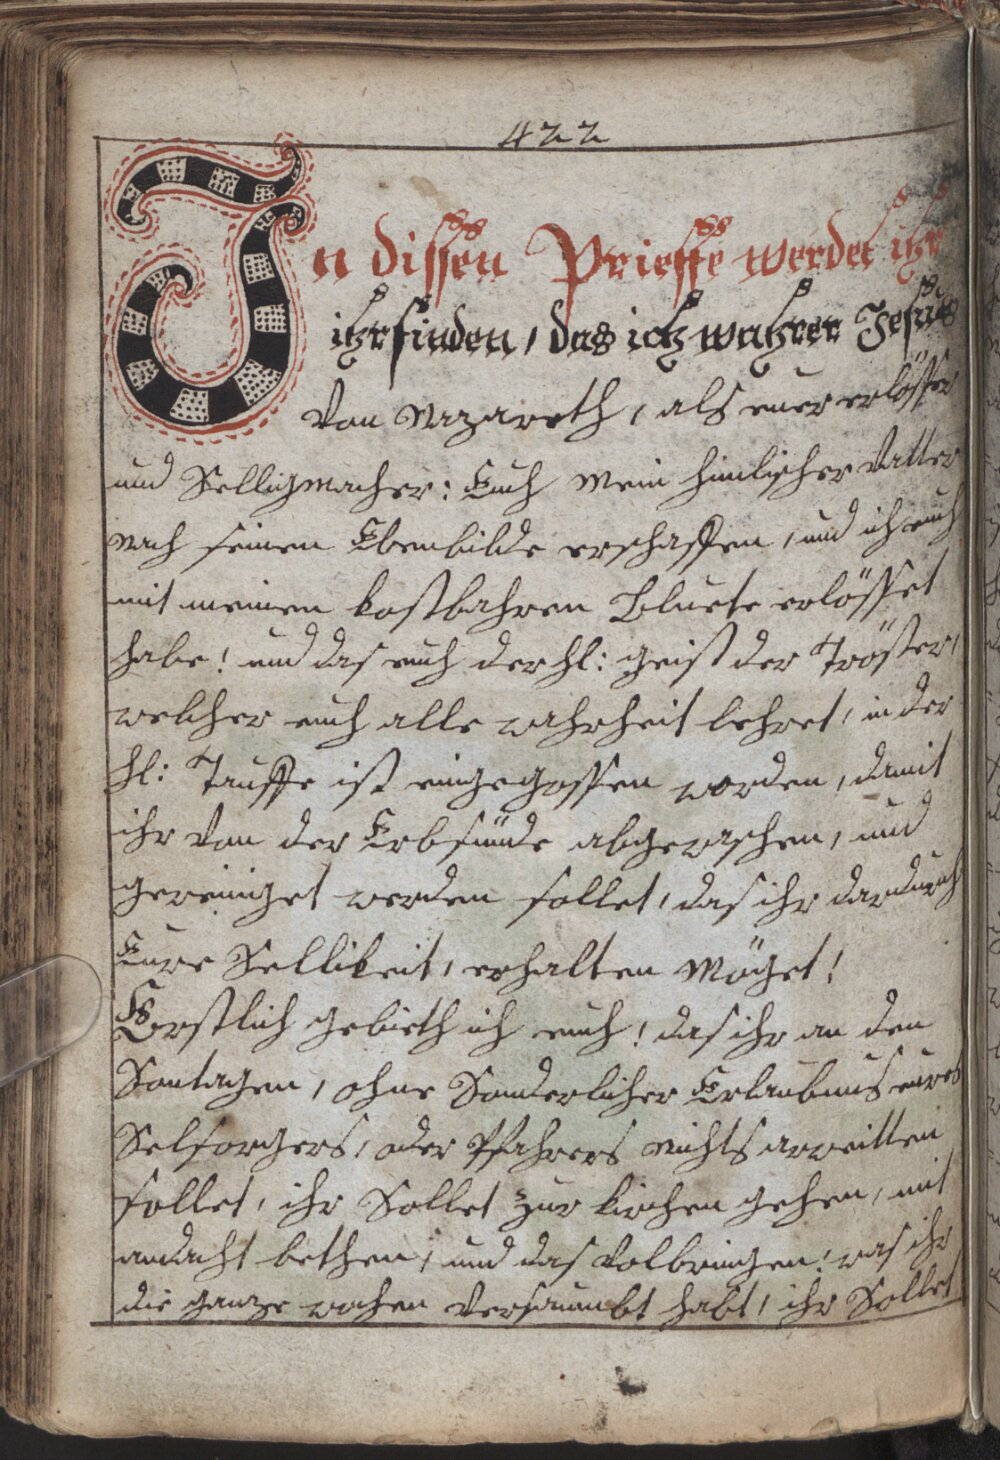 422
In dissen Prieffe werdet ihr
ihr finden, das ich wahrer Jesus
von Nazareth, als euer erlösser
und Selligmacher: Euch mein himlischer Vatter
nach seinen Ebenbilde erschaffen, und ich euch
mit meinen kostbahren Bluete erlösset
habe! und das euch der hl: geist der Tröster,
welcher euch alle wahrheit lehret, in der
hl: Tauffe ist eingegossen worden, damit
ihr von der Erbsünde abgewaschen, und
gereiniget werden sollet, das ihr dardurch
Eure Sellikeit, erhalten möget!
Erstlich gebieth ich euch! das ihr an den
Sontagen, ohne Sonderlicher Erlaubnus eures
Selsorgers, oder Pfahrers nichts arweitten
sollet, ihr Sollet zur kirchen gehen, mit
andacht bethen, und das volbringen: was ihr
die ganze wochen versaumbt habt, ihr Sollet